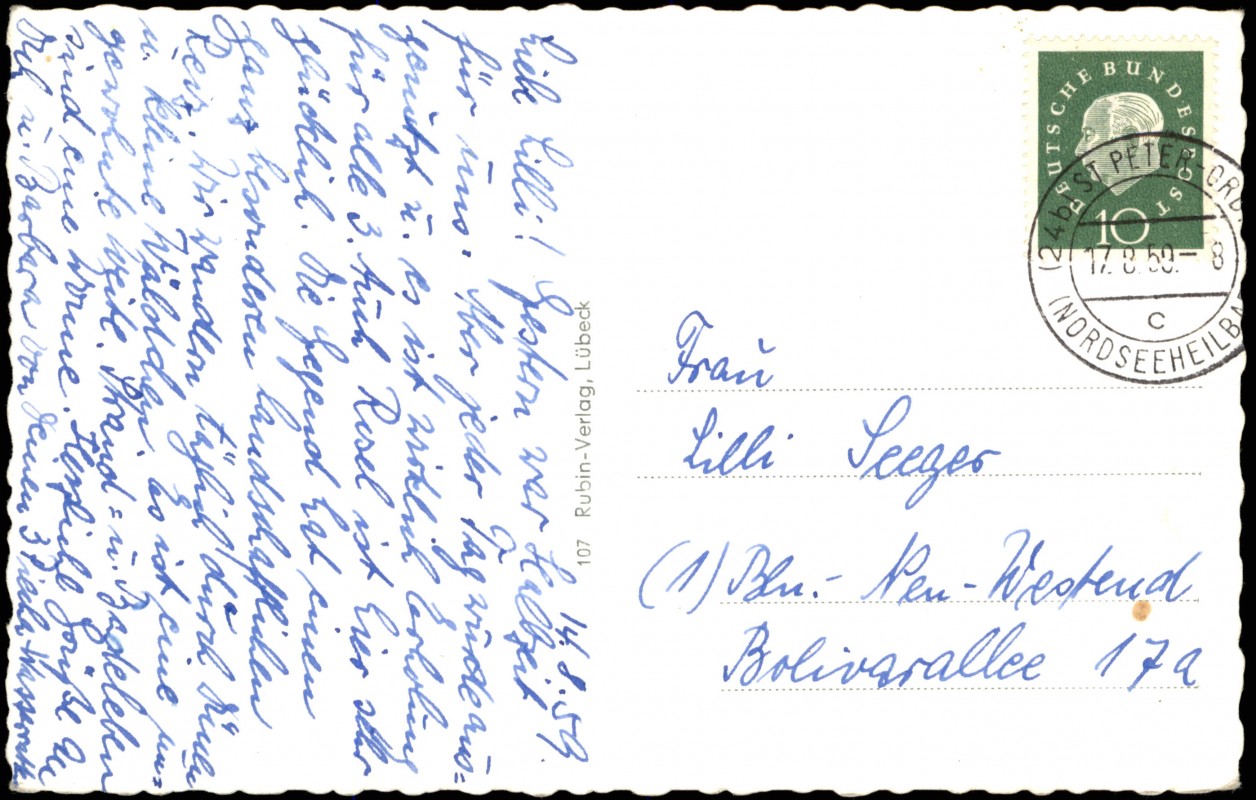 14.8.59.
Liebe Lilli! Gestern war Halbzeit
für uns. Aber jeder Tag wurde aus=
genutzt u. es ist wirklich Erholung
für alle 3. Auch Rosel ist hier sehr
glücklich. Die Gegend hat einen
ganz besonderen landschaftlichen
Reiz. Wir wandern täglich durch Dünen
u. kleine Wäldchen. Es ist eine un=
gewohnte Weite. Strand= u. Badeleben
sind eine Wonne. Herzliche Grüße an
Dich u. Barbara von Deinen 3
107 Rubin-Verlag, Lübeck
DEUTSCHE BUNDESPOST
10
(24b) ST. PETER-ORD
17.8.59.-8
c
(NORDSEEHEILBA
Frau
Lilli Seeger
(1) Bln.- Neu-Westend
Bolivarallee 17a